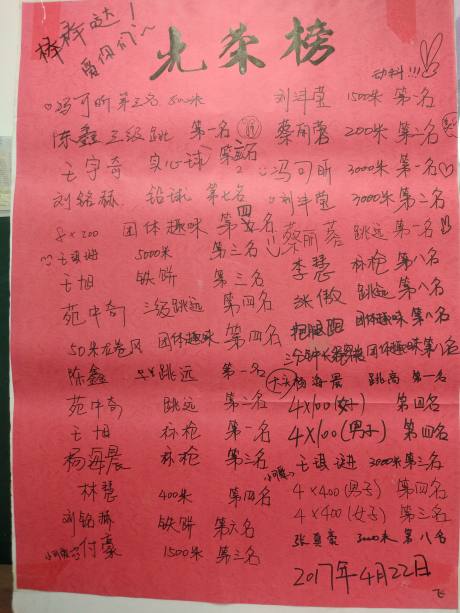 棒棒哒！
爱你们～
光荣榜
加料!!!
冯可昕 第三名 800米
陈鑫 三级跳 第一名
王宇奇 实心球 第五名
刘铭赫 铅球 第七名
8×200 团体趣味 第四名
5000米 第三名
王旭 铁饼 第三名
苑中奇 三级跳远 第四名
50米龙卷风 团体趣味 第四名
陈鑫 跳远 第一名
苑中奇 跳远 第二名
王旭 标枪 第一名
杨海晨 标枪 第三名
林慧 400米 第四名
刘铭赫 铁饼 第六名
付豪 1500米 第三名
刘斗莹 1500米 第一名
蔡丽蓉 200米 第二名
冯可昕 3000米 第一名
刘斗莹 3000米 第二名
蔡丽蓉 跳远 第一名
李慧 标枪 第八名
张傲 跳远 第八名
团体趣味 第八名
三分钟 团体趣味 第八名
杨海晨 跳高 第一名
4×100(女子) 第四名
4×100(男子) 第四名
3000米 第三名
4×400(男子) 第四名
4×400(女子) 第三名
3000米 第八名
2017年4月22日
飞